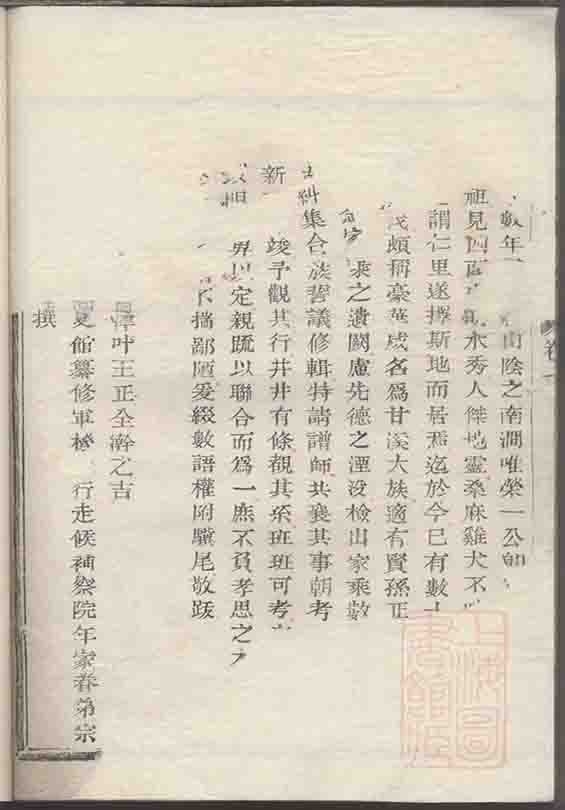 數年 山陰之南澗唯榮一公
祖見四面 水秀人傑地靈桑麻雞犬不
謂仁里遂擇斯地而居焉迄於今已有數十
茂頗稱豪華咸名為甘溪大族適有賢孫正
乘之遺闕慮先德之湮没檢出家乘數
糾集合族耆議修輯特請譜師共襄其事朝考
新 竣予觀其行井井有條觀其系班班可考
界以定親疏以聯合而為一庶不負孝思之
揣鄙陋爰綴數語權附驥尾敬跋
叶王正全澣之吉
史館纂修軍機 行走候補察院年家眷弟宗
撰
卷
上海圖書館藏